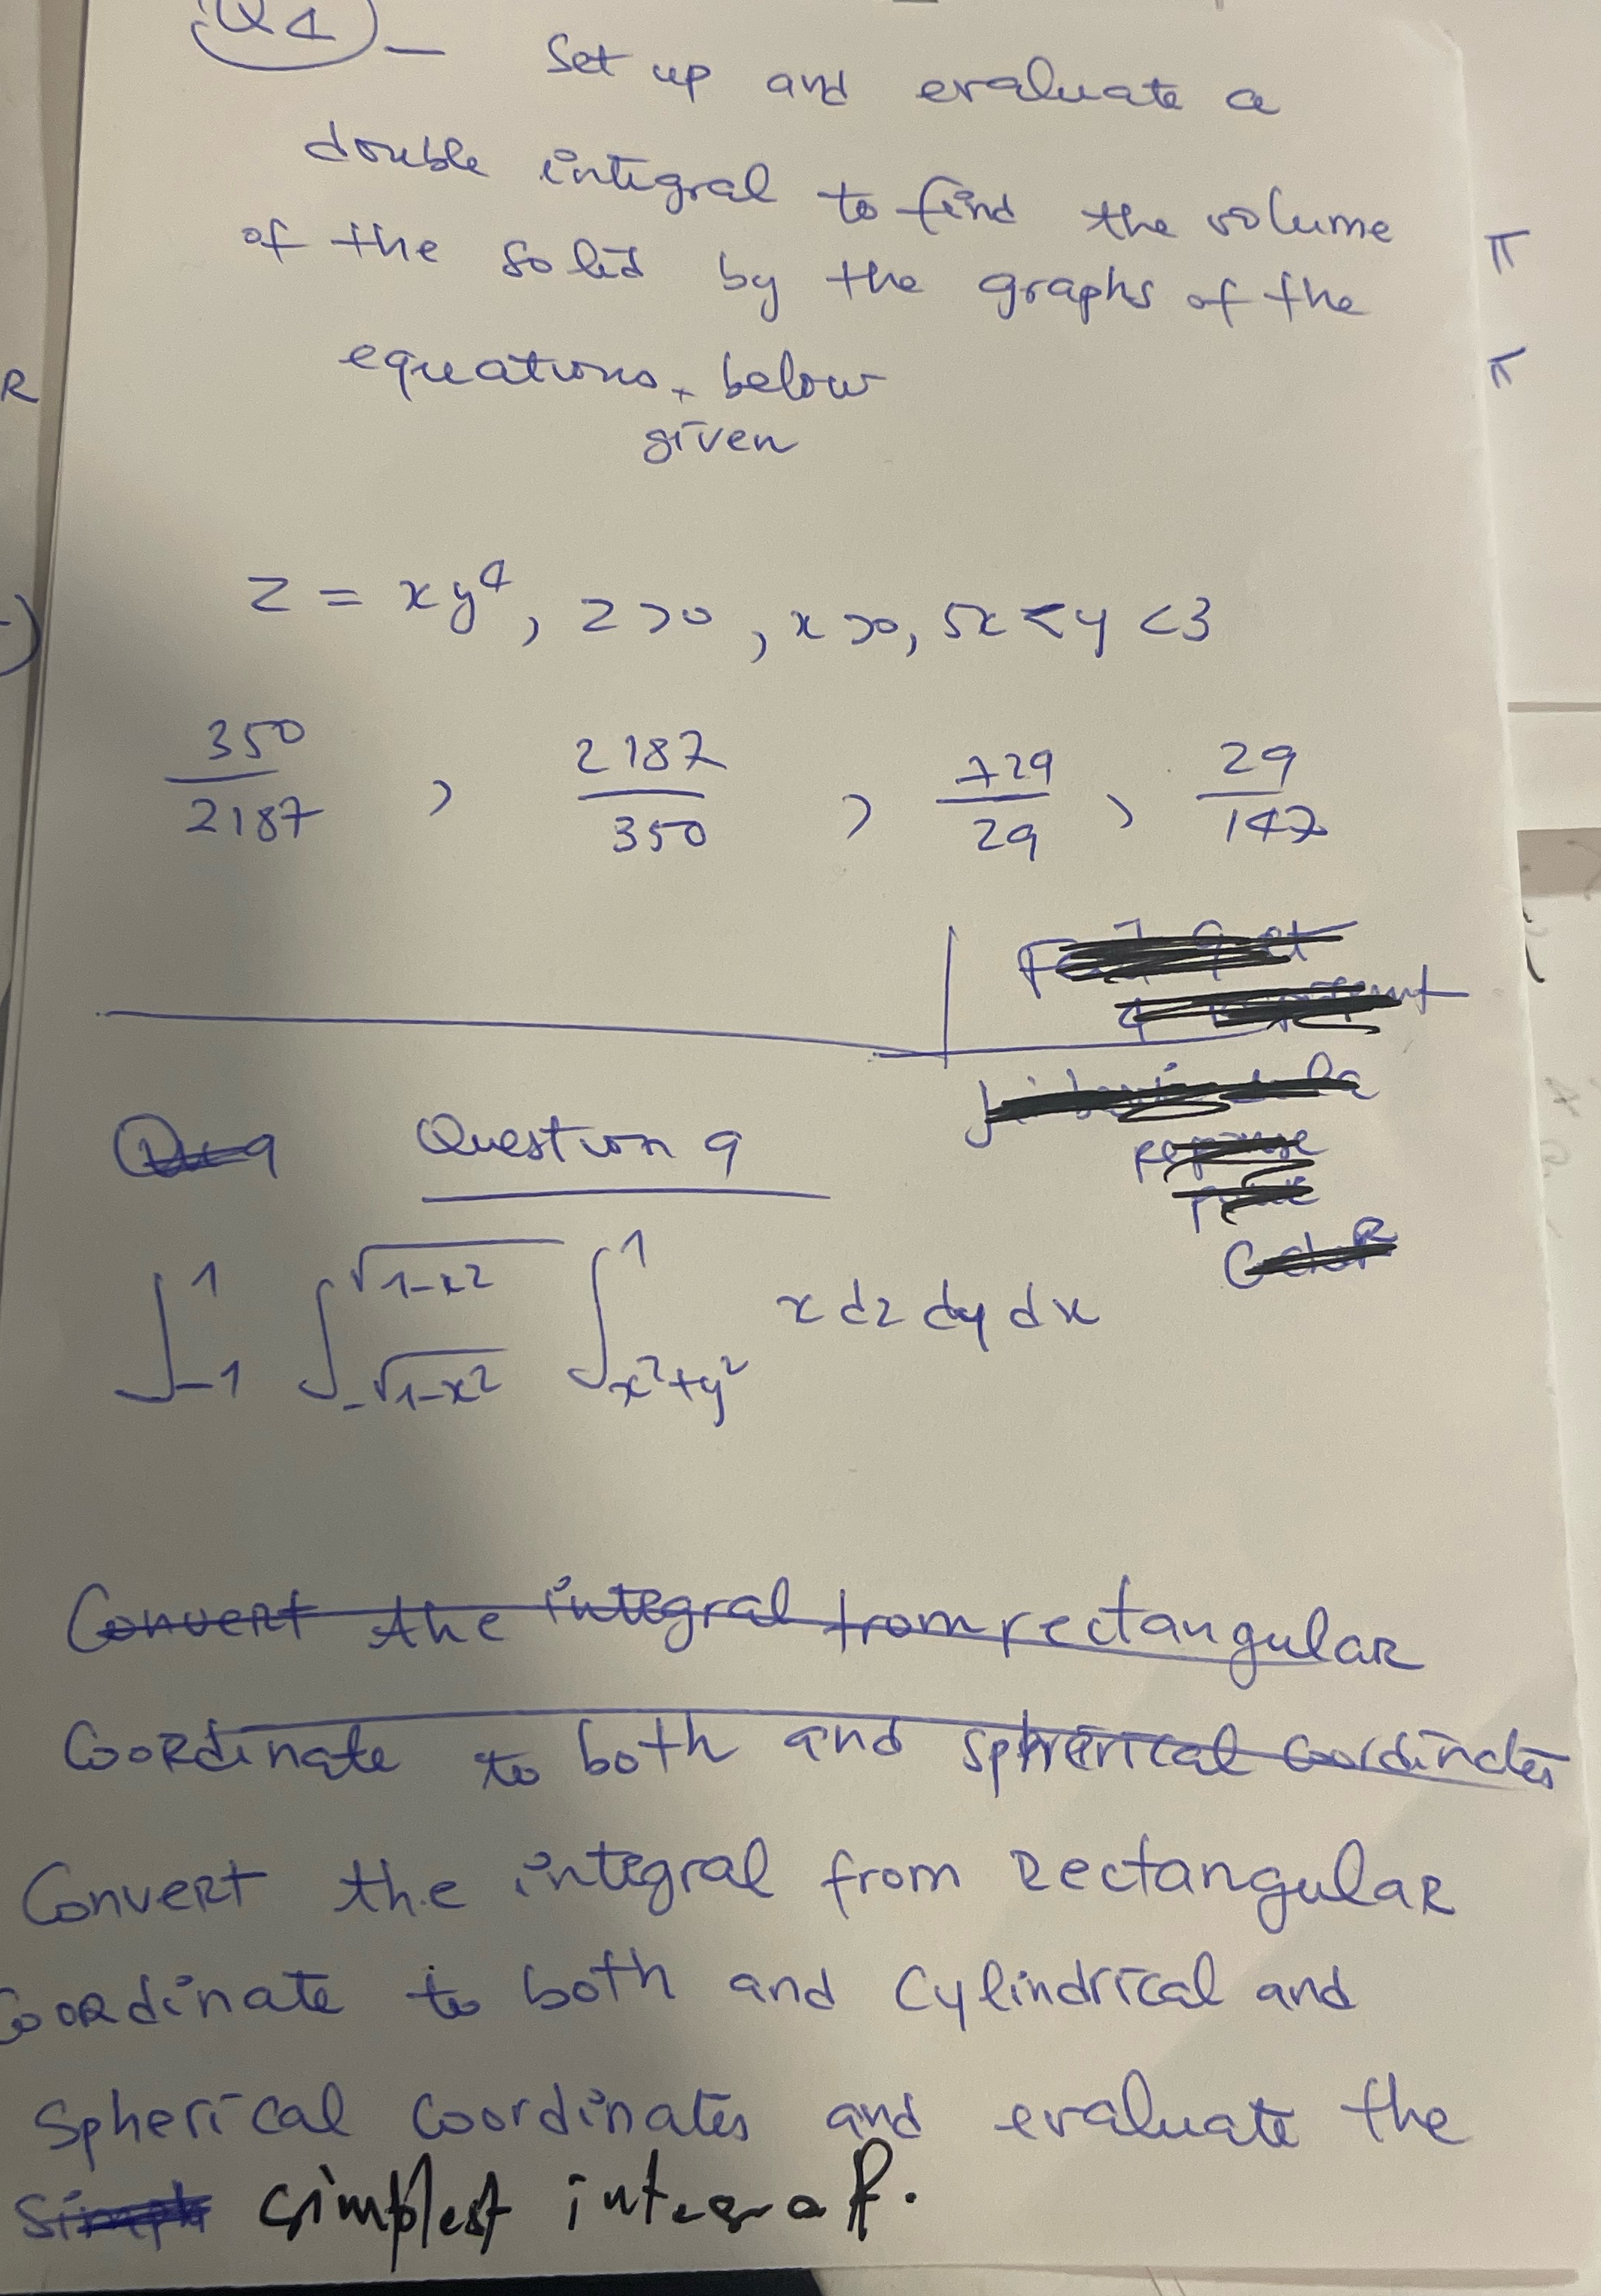 Q4) - Set up and evaluate a
double integral to find the volume
of the solid by the graphs of the
equations, below
given
z = xy⁴, z>0, x>0, 5x<y<3
350/2187, 2187/350, 729/29, 29/147
Question 9
∫_{-1}^{1} ∫_{-√1-x²}^{√1-x²} ∫_{x²+y²}^{1} x dz dy dx
Convert the integral from rectangular
Coordinate to both and spherical coordinates
Convert the integral from Rectangular
Coordinate to both and Cylindrical and
Spherical Coordinates and evaluate the
simplest integral.
π
π
R